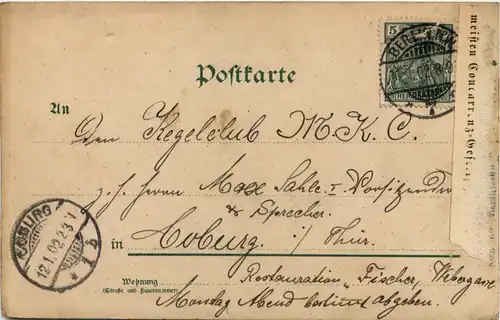 Postkarte
An
Den Kegelclub M. K. C.
z. H. Herrn Max Sahle I Vorsitzenden
& Sprecher
in Coburg i/ Thür.
Wohnung
(Straße und Hausnummer)
Restauration „Fischer, Webergasse
Montag Abend bestimmt abgeben.
COBURG
12.1.02. 2-3 N
BERLIN
5
meisten Concurrenz-Gesch